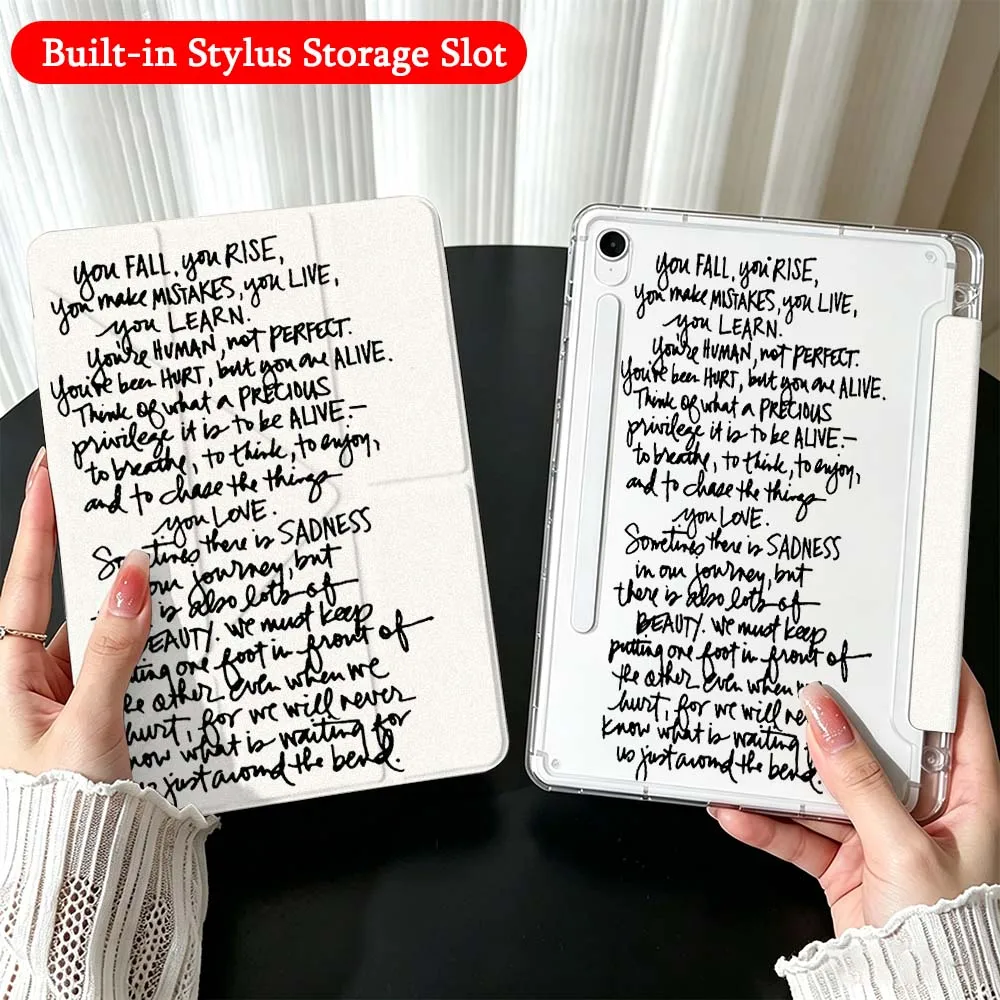 Built-in Stylus Storage Slot
you FALL, you RISE,
you make MISTAKES, you LIVE,
you LEARN.
you're HUMAN, not PERFECT.
You've been HURT, but you are ALIVE.
Think of what a PRECIOUS
privilege it is to be ALIVE —
to breathe, to think, to enjoy,
and to chase the things
you LOVE.
Sometimes there is SADNESS
our journey, but
is also lots of
EAUTY. we must keep
tting one foot in front of
the other even when we
hurt, for we will never
now what is waiting for
us just around the bend.
you FALL, you RISE,
you make MISTAKES, you LIVE,
you LEARN.
you're HUMAN, not PERFECT.
You've been HURT, but you are ALIVE.
Think of what a PRECIOUS
privilege it is to be ALIVE —
to breathe, to think, to enjoy,
and to chase the things
you LOVE.
Sometimes there is SADNESS
in our journey, but
there is also lots of
BEAUTY. we must keep
putting one foot in front of
the other even when we
hurt, for we will never
know what is waiting
us just around the bend.